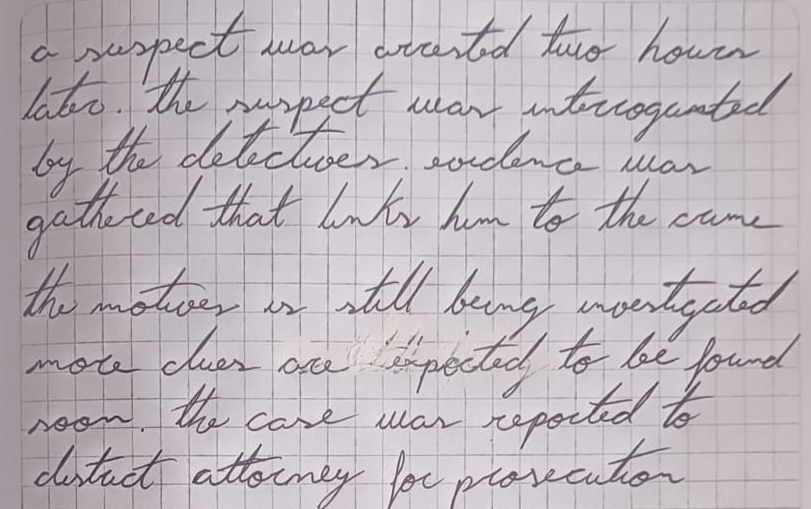 a suspect was arrested two hours
later. the suspect was interrogated
by the detectives. evidence was
gathered that links him to the crime
the motives is still being investigated
more clues are expected to be found
soon. the case was reported to
district attorney for prosecution